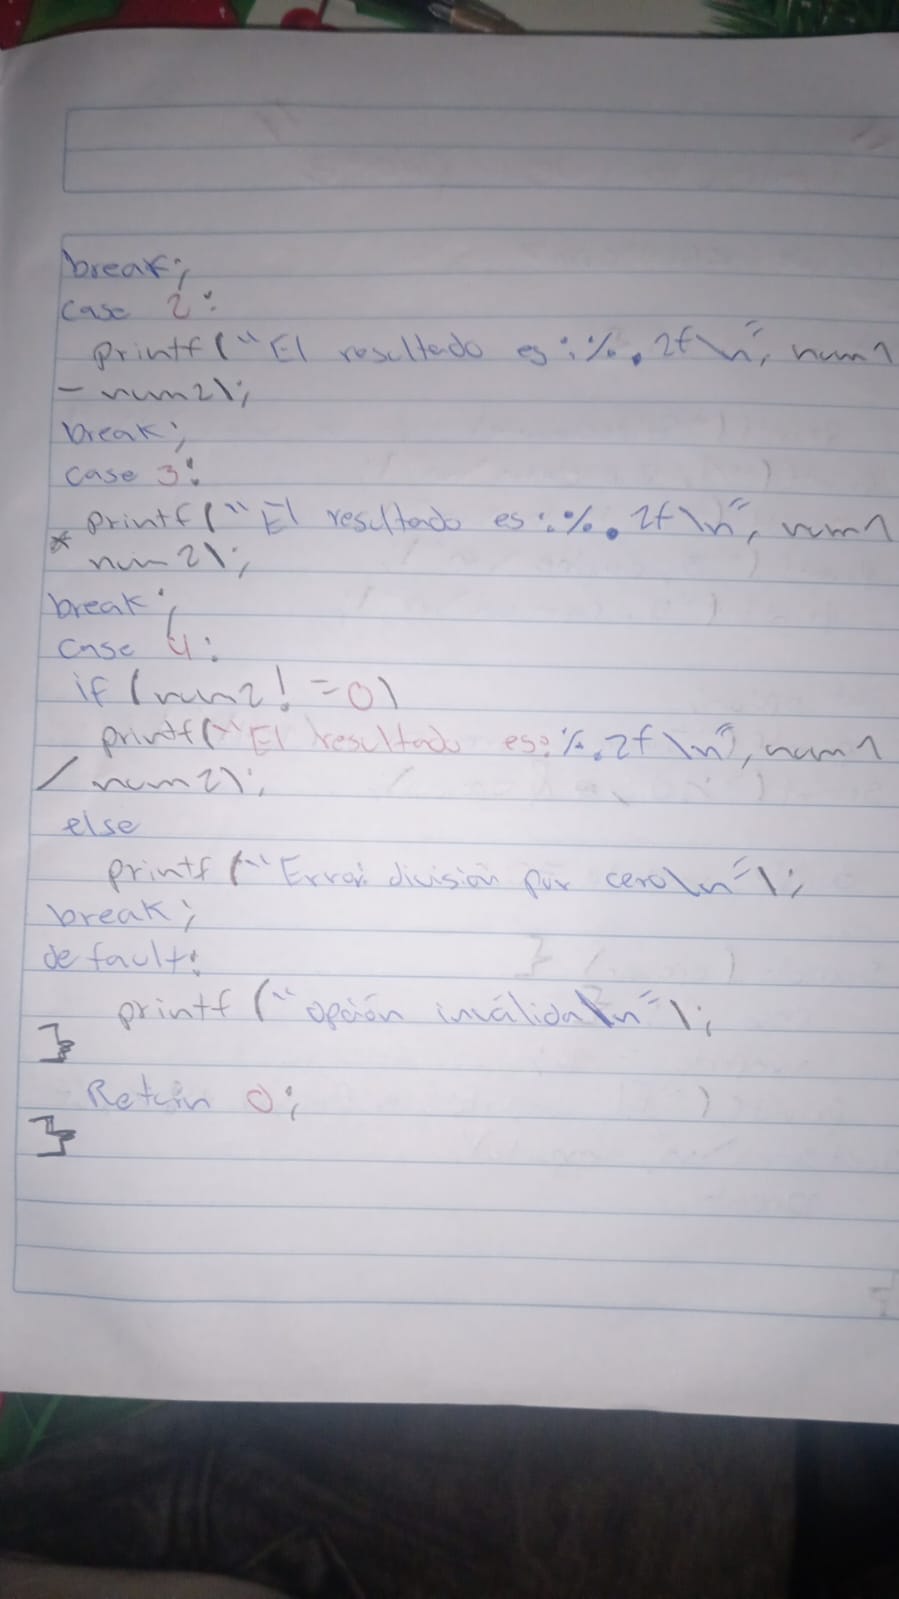 break;
case 2:
printf("El resultado es:%.2f\n", num1
- num2);
break;
case 3:
printf("El resultado es:%.2f\n", num1
* num2);
break;
case 4:
if (num2! =0)
printf("El resultado es:%.2f\n"), num1
/ num2);
else
printf("Error: división por cero\n");
break;
default:
printf("opción inválida\n");
}
Return 0;
}